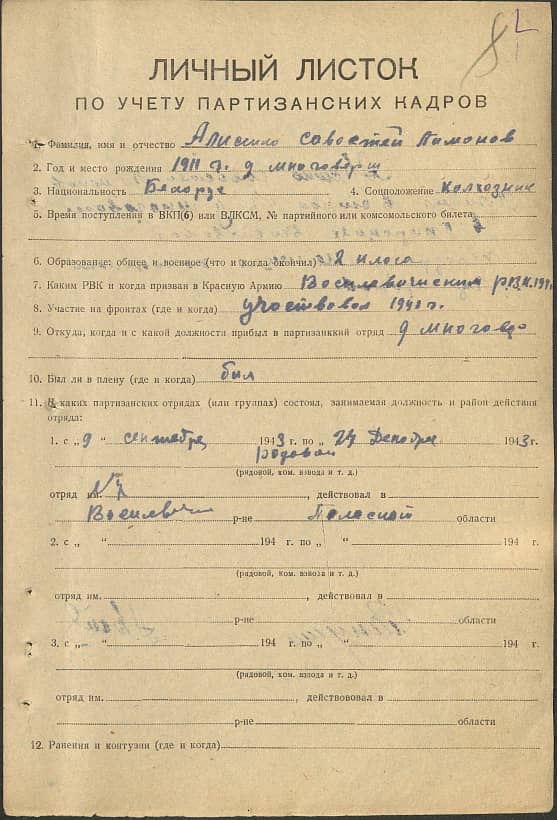 ЛИЧНЫЙ ЛИСТОК
ПО УЧЕТУ ПАРТИЗАНСКИХ КАДРОВ
1. Фамилия, имя и отчество Савостей
2. Год и место рождения 1911 г. д
3. Национальность Белорус 4. Соцположение Колхозник
5. Время поступления в ВКП(б) или ВЛКСМ, № партийного или комсомольского билета
6. Образование: общее и военное (что и когда окончил) 2 класа
7. Каким РВК и когда призван в Красную Армию Василевичиским
8. Участие на фронтах (где и когда) участвовал
9. Откуда, когда и с какой должности прибыл в партизанккий отряд д
10. Был ли в плену (где и когда) был
11. В каких партизанских отрядах (или группах) состоял, занимаемая должность и район действия
отряда:
1. с „ 9 “ сентебре 1943 г. по „ 24 “ Декобре 1943 г.
родовой
(рядовой, ком. взвода и т. д.)
отряд им. , действовал в
Василевичи р-не области
2. с „ “ 194 г. по „ “ 194 г.
(рядовой, ком. взвода и т. д.)
отряд им. , действовал в
р-не области
3. с „ “ 194 г. по „ “ 194 г.
(рядовой, ком. взвода и т. д.)
отряд им. , действововал в
р-не области
12. Ранения и контузии (где и когда)